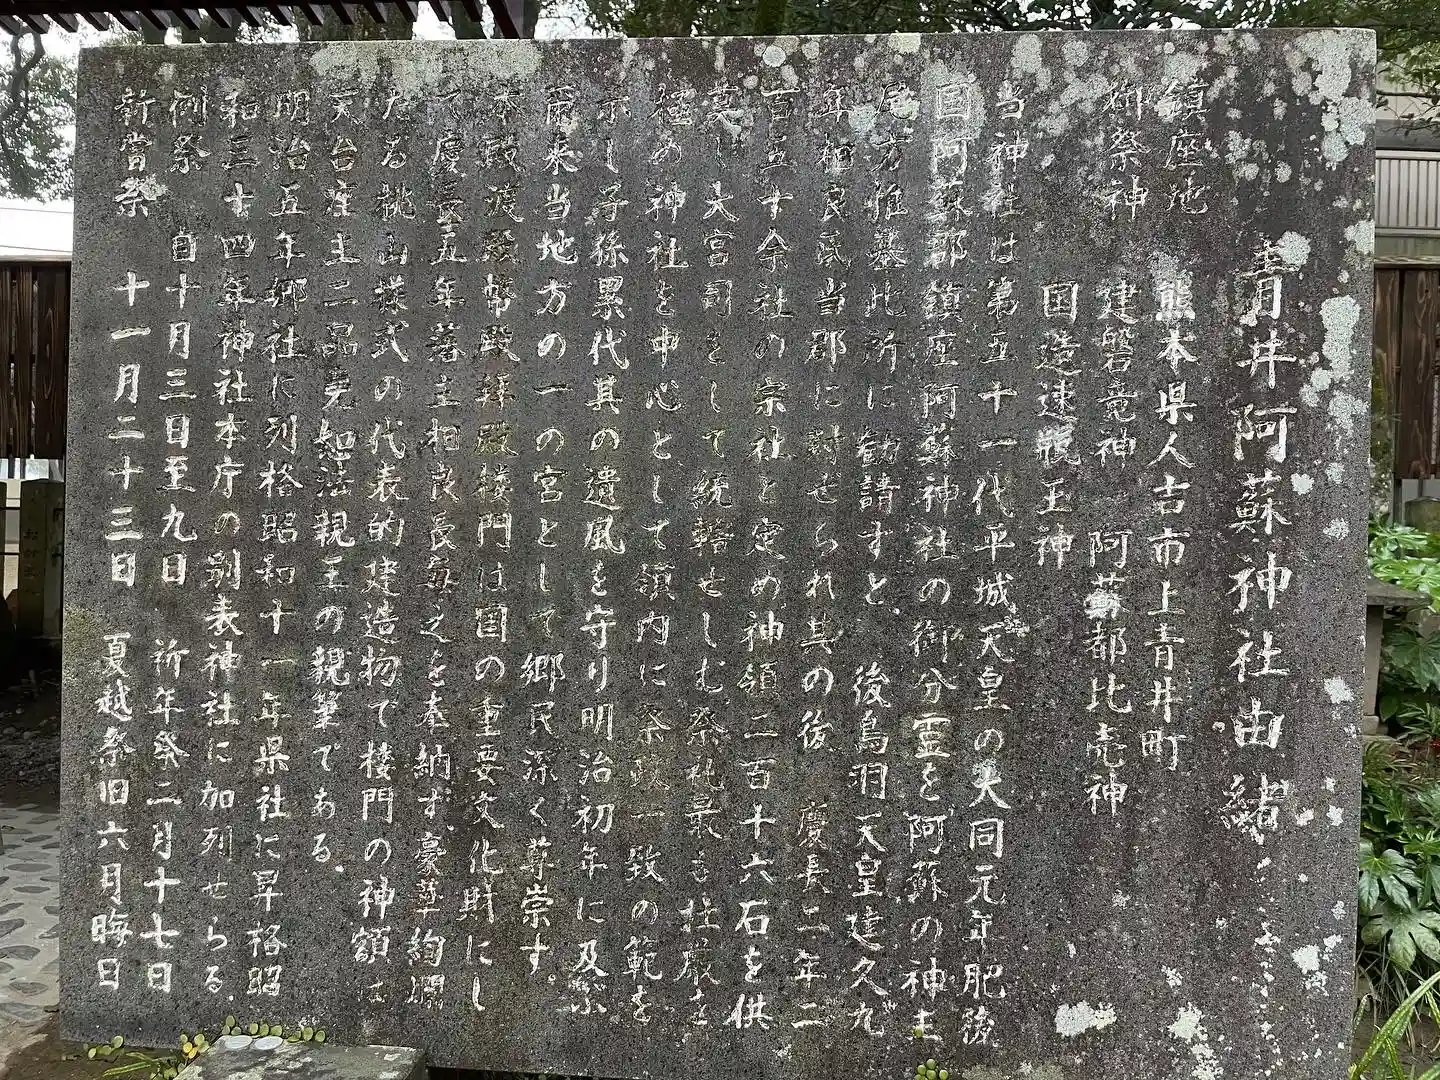 青井阿蘇神社由緒
鎮座地　熊本県人吉市上青井町
御祭神　建磐竜神　阿蘇都比売神
国造速瓶玉神
当神社は第五十一代平城天皇の大同元年肥後
国阿蘇郡鎮座阿蘇神社の御分霊を阿蘇の神主
尾方惟基此所に勧請すと、後鳥羽天皇建久九
年相良氏当郡に封ぜられ其の後　慶長二年二
百五十余社の宗社と定め神領二百十六石を供
し大宮司をして統轄せしむ祭礼最も壮厳を
極め神社を中心として領内に祭政一致の範を
示し子孫累代其の遺風を守り明治初年に及ぶ
爾来当地方の一の宮として郷民深く尊崇す。
本殿渡殿幣殿拝殿楼門は国の重要文化財にし
て慶長五年落主相良長毎之を奉納す、豪華絢爛
たる桃山様式の代表的建造物で楼門の神額は
天台座主二品尭恕法親王の親筆である。
明治五年郷社に列格昭和十一年県社に昇格昭
和三十四年神社本庁の別表神社に加列せらる、
例祭　自十月三日至九日　祈年祭二月十七日
新嘗祭　十一月二十三日　夏越祭旧六月晦日